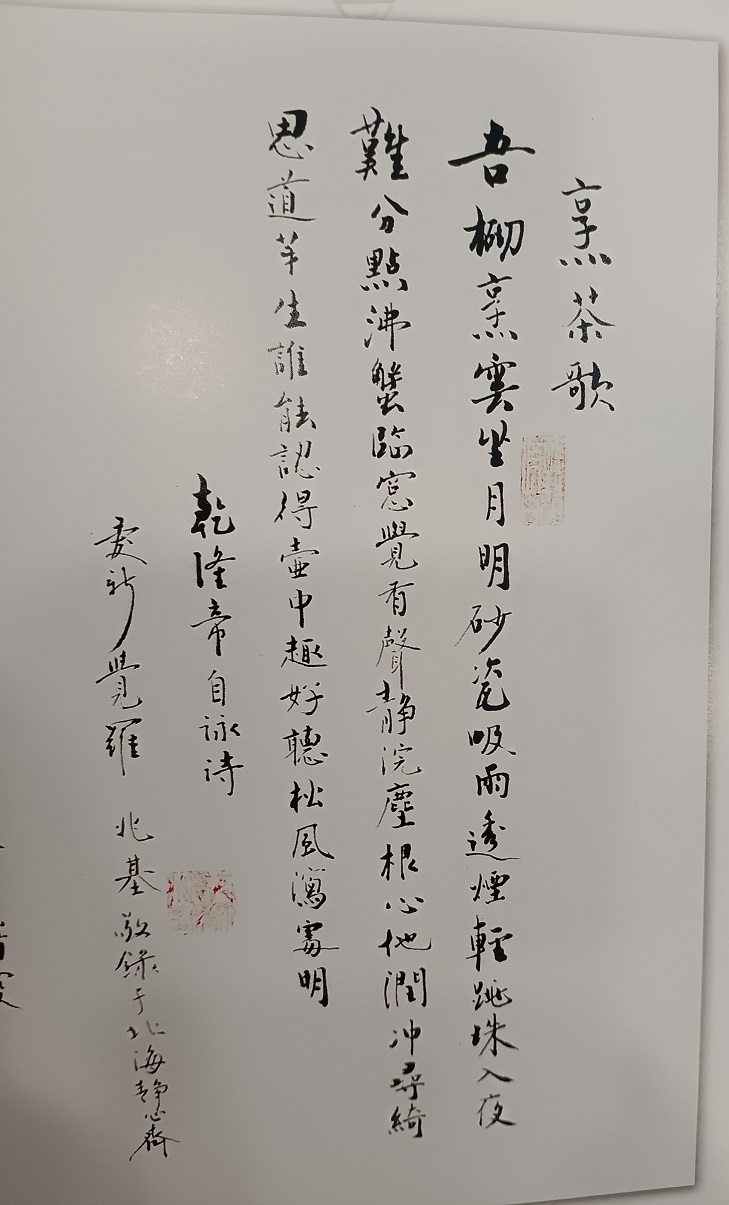 烹茶歌
吾棚烹雲坐月明砂瓷吸雨透煙輕跳珠入夜
難分點沸蟹臨窓覺有聲静浣塵根心地潤冲尋綺
思道芽生誰能認得壷中趣好聴松風瀉處明
乾隆帝自詠詩
愛新覺羅 兆基敬錄于北海静心齋